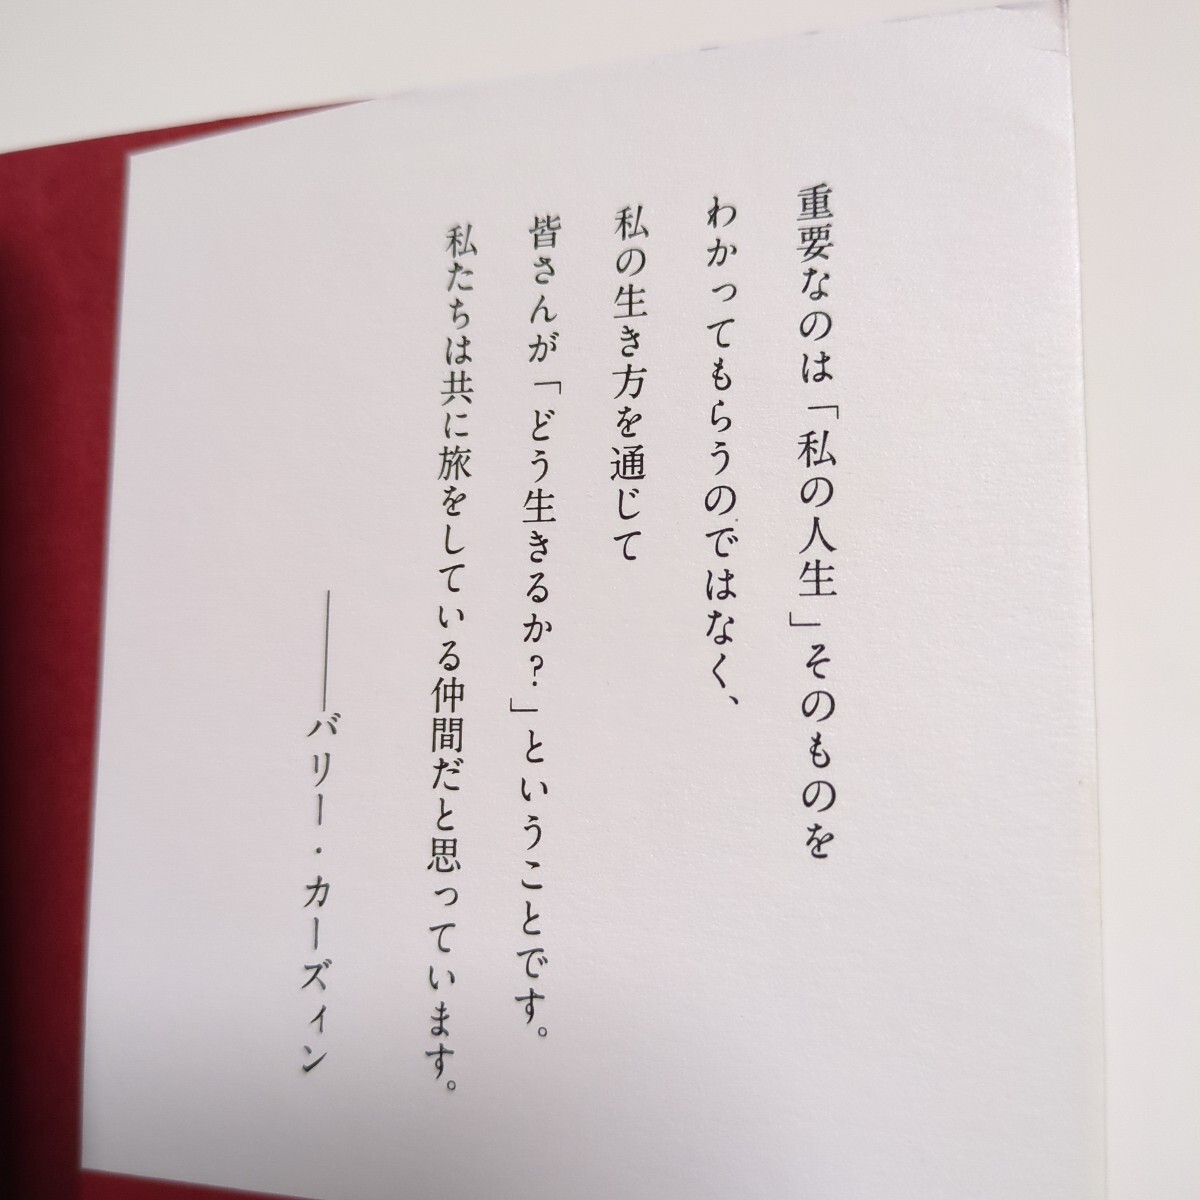 重要なのは「私の人生」そのものを
わかってもらうのではなく、
私の生き方を通じて
皆さんが「どう生きるか?」ということです。
私たちは共に旅をしている仲間だと思っています。
――バリー・カーズィン